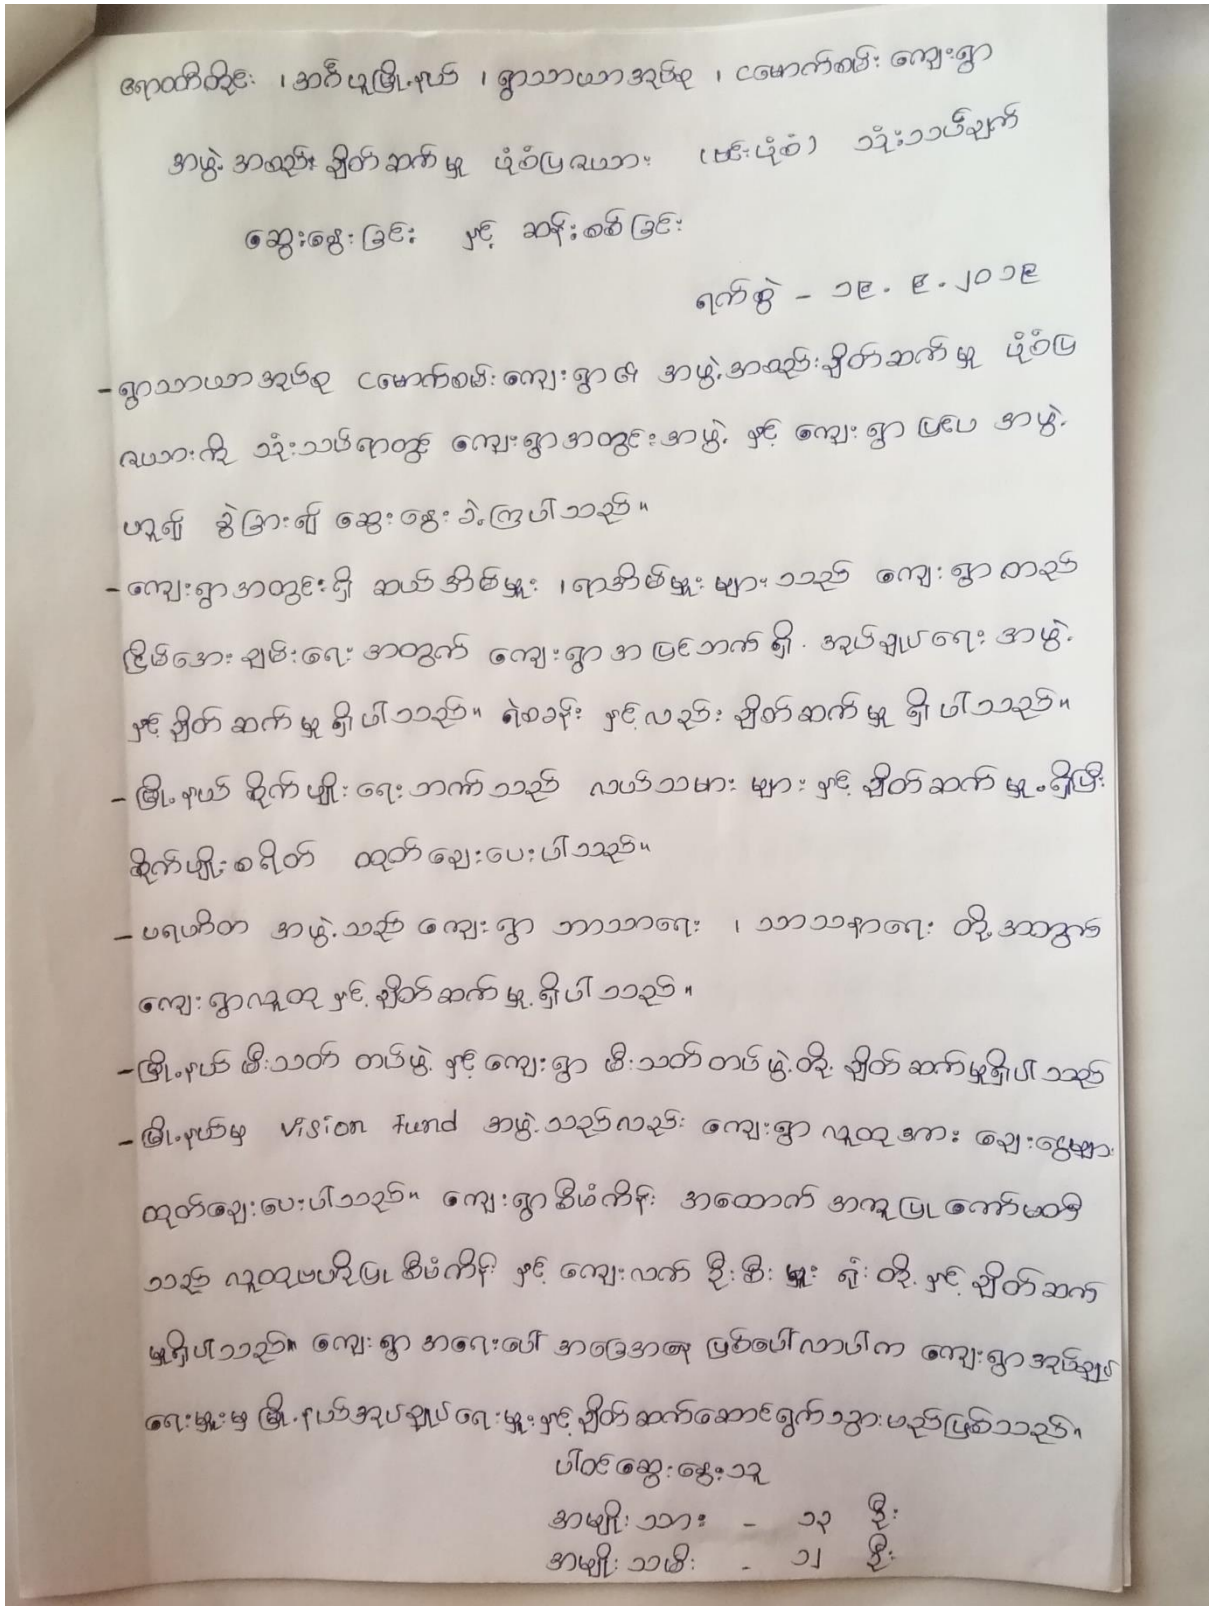 ဧရာဝတီတိုင်း ၊ အင်္ဂပူမြို့နယ် ၊ ရွာသာယာအုပ်စု ၊ ငမောက်စမ်း ကျေးရွာ
အဖွဲ့အစည်း ချိတ်ဆက်မှု ပုံစံပြဇယား (ဗင်းပုံစံ) သုံးသပ်ချက်
ဆွေးနွေးခြင်း နှင့် ဆန်းစစ်ခြင်း
ရက်စွဲ - ၁၉.၉.၂၀၁၉
- ရွာသာယာအုပ်စု ငမောက်စမ်းကျေးရွာ၏ အဖွဲ့အစည်းချိတ်ဆက်မှု ပုံစံပြ
ဇယားကို သုံးသပ်ရာတွင် ကျေးရွာအတွင်းအဖွဲ့ နှင့် ကျေးရွာ ပြင်ပ အဖွဲ့
ဟူ၍ ခွဲခြား၍ ဆွေးနွေးခဲ့ကြပါသည်။
- ကျေးရွာအတွင်းရှိ ဆယ်အိမ်မှူး ၊ ရာအိမ်မှူးများသည် ကျေးရွာတည်
ငြိမ်အေးချမ်းရေး အတွက် ကျေးရွာအပြင်ဘက်ရှိ အုပ်ချုပ်ရေး အဖွဲ့
နှင့် ချိတ်ဆက်မှု ရှိပါသည်။ ရဲစခန်း နှင့်လည်း ချိတ်ဆက်မှု ရှိပါသည်။
- မြို့နယ် စိုက်ပျိုးရေးဘဏ်သည် လယ်သမားများ နှင့် ချိတ်ဆက်မှု ရှိပြီး
စိုက်ပျိုးစရိတ် ထုတ်ချေးပေးပါသည်။
- ပရဟိတ အဖွဲ့သည် ကျေးရွာ ဘာသာရေး ၊ သာသနာရေး တို့အတွက်
ကျေးရွာလူထု နှင့် ချိတ်ဆက်မှု ရှိပါသည်။
- မြို့နယ် မီးသတ် တပ်ဖွဲ့ နှင့် ကျေးရွာ မီးသတ်တပ်ဖွဲ့တို့ ချိတ်ဆက်မှုရှိပါသည်
- မြို့နယ်မှ Vision Fund အဖွဲ့သည်လည်း ကျေးရွာ လူထုအား ချေးငွေများ
ထုတ်ချေးပေးပါသည်။ ကျေးရွာစီမံကိန်း အထောက်အကူပြု ကော်မတီ
သည် လူထုဗဟိုပြုစီမံကိန်း နှင့် ကျေးလက် ဦးစီးမှူးရုံး တို့ နှင့် ချိတ်ဆက်
မှုရှိပါသည်။ ကျေးရွာ အရေးပေါ် အခြေအနေ ဖြစ်ပေါ်လာပါက ကျေးရွာအုပ်ချုပ်
ရေးမှူးမှ မြို့နယ်အုပ်ချုပ်ရေးမှူးနှင့် ချိတ်ဆက်ဆောင်ရွက်သွားမည်ဖြစ်သည်။
ပါဝင်ဆွေးနွေးသူ
အမျိုးသား - ၁၃ ဦး
အမျိုးသမီး - ၁၂ ဦး